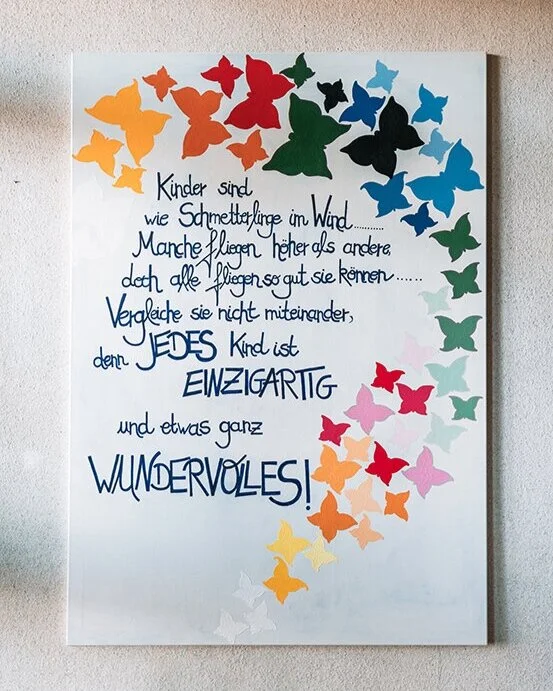 Kinder sind
wie Schmetterlinge im Wind..........
Manche fliegen höher als andere,
doch alle fliegen so gut sie können......
Vergleiche sie nicht miteinander,
denn JEDES Kind ist
EINZIGARTIG
und etwas ganz
WUNDERVOLLES!